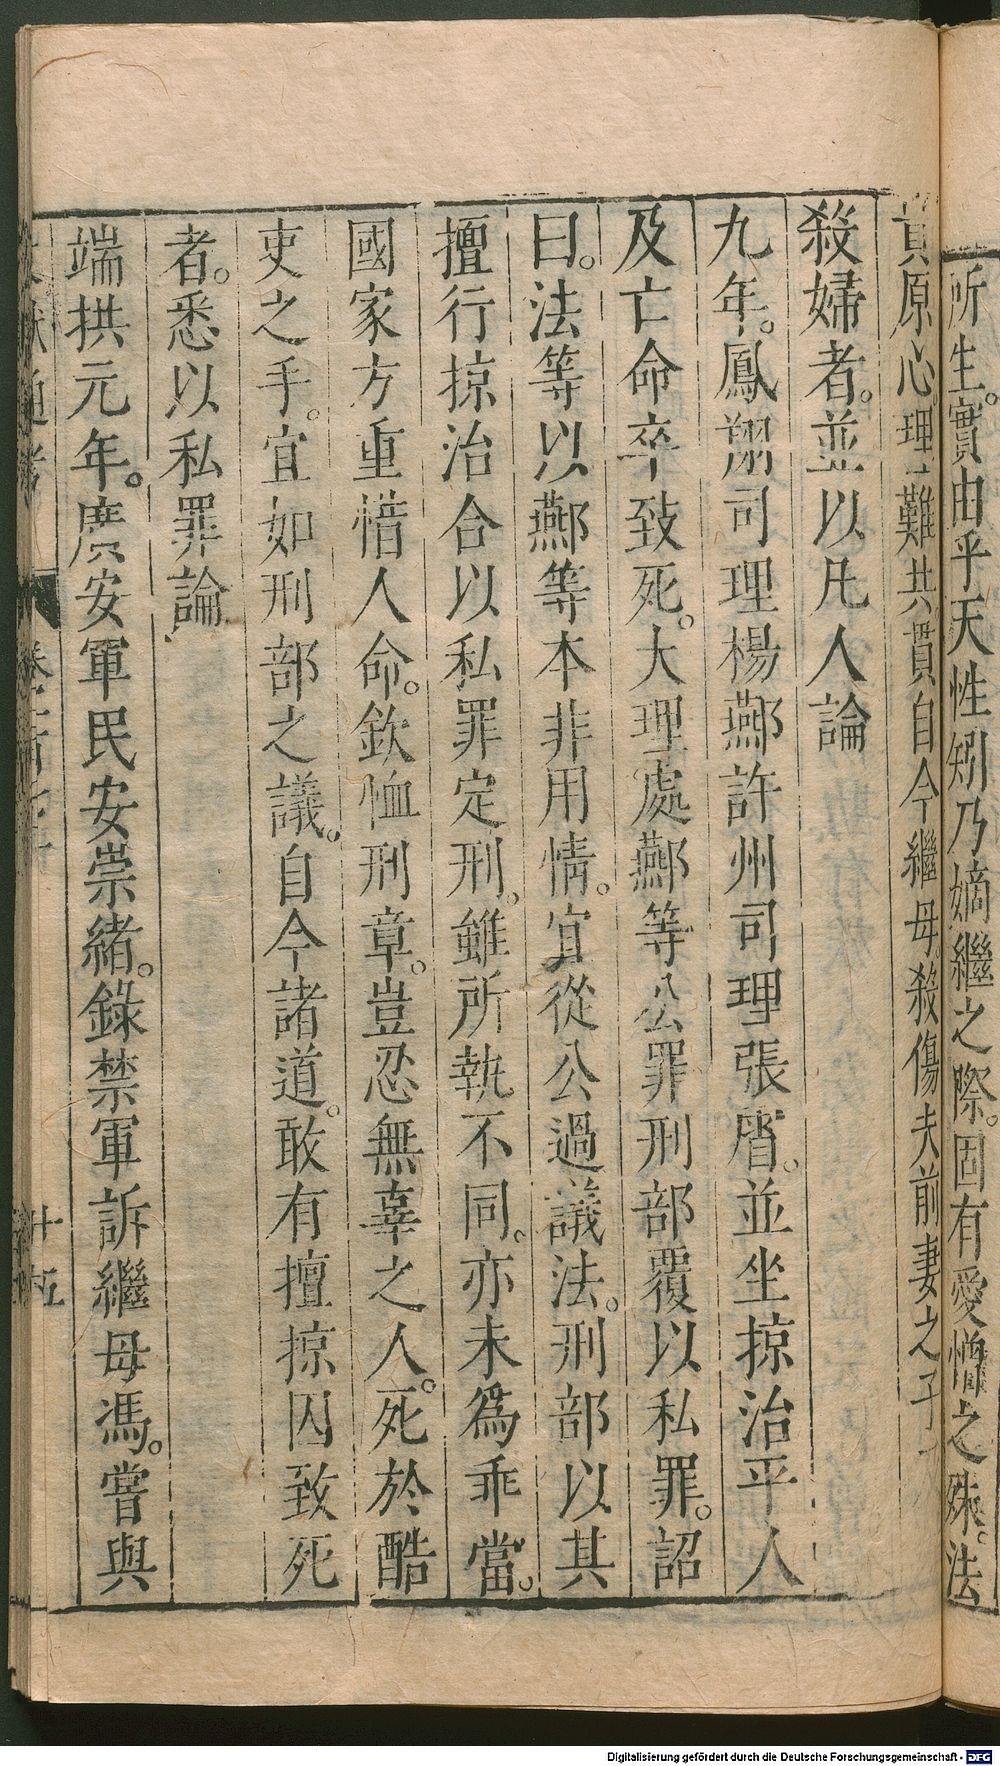 所生。實由乎天性矧乃嫡繼之際。固有愛憎之殊。法
貴原心。理難共貫自今繼母。殺傷夫前妻之子
殺婦者。並以凡人論
九年。鳳翔司理楊鄰許州司理張睿。並坐掠治平人
及亡命卒致死。大理處鄰等公罪刑部覆以私罪。詔
曰。法等以鄰等本非用情。宜從公過議法。刑部以其
擅行掠治合以私罪定刑。雖所執不同。亦未爲乖當。
國家方重惜人命。欽恤刑章。豈忍無辜之人。死於酷
吏之手。宜如刑部之議。自今諸道。敢有擅掠囚致死
者。悉以私罪論
端拱元年。廣安軍民安崇緒。錄禁軍訴繼母馮。嘗與
文獻通考 卷一百七十 廿五
Digitalisierung gefördert durch die Deutsche Forschungsgemeinschaft - DFG